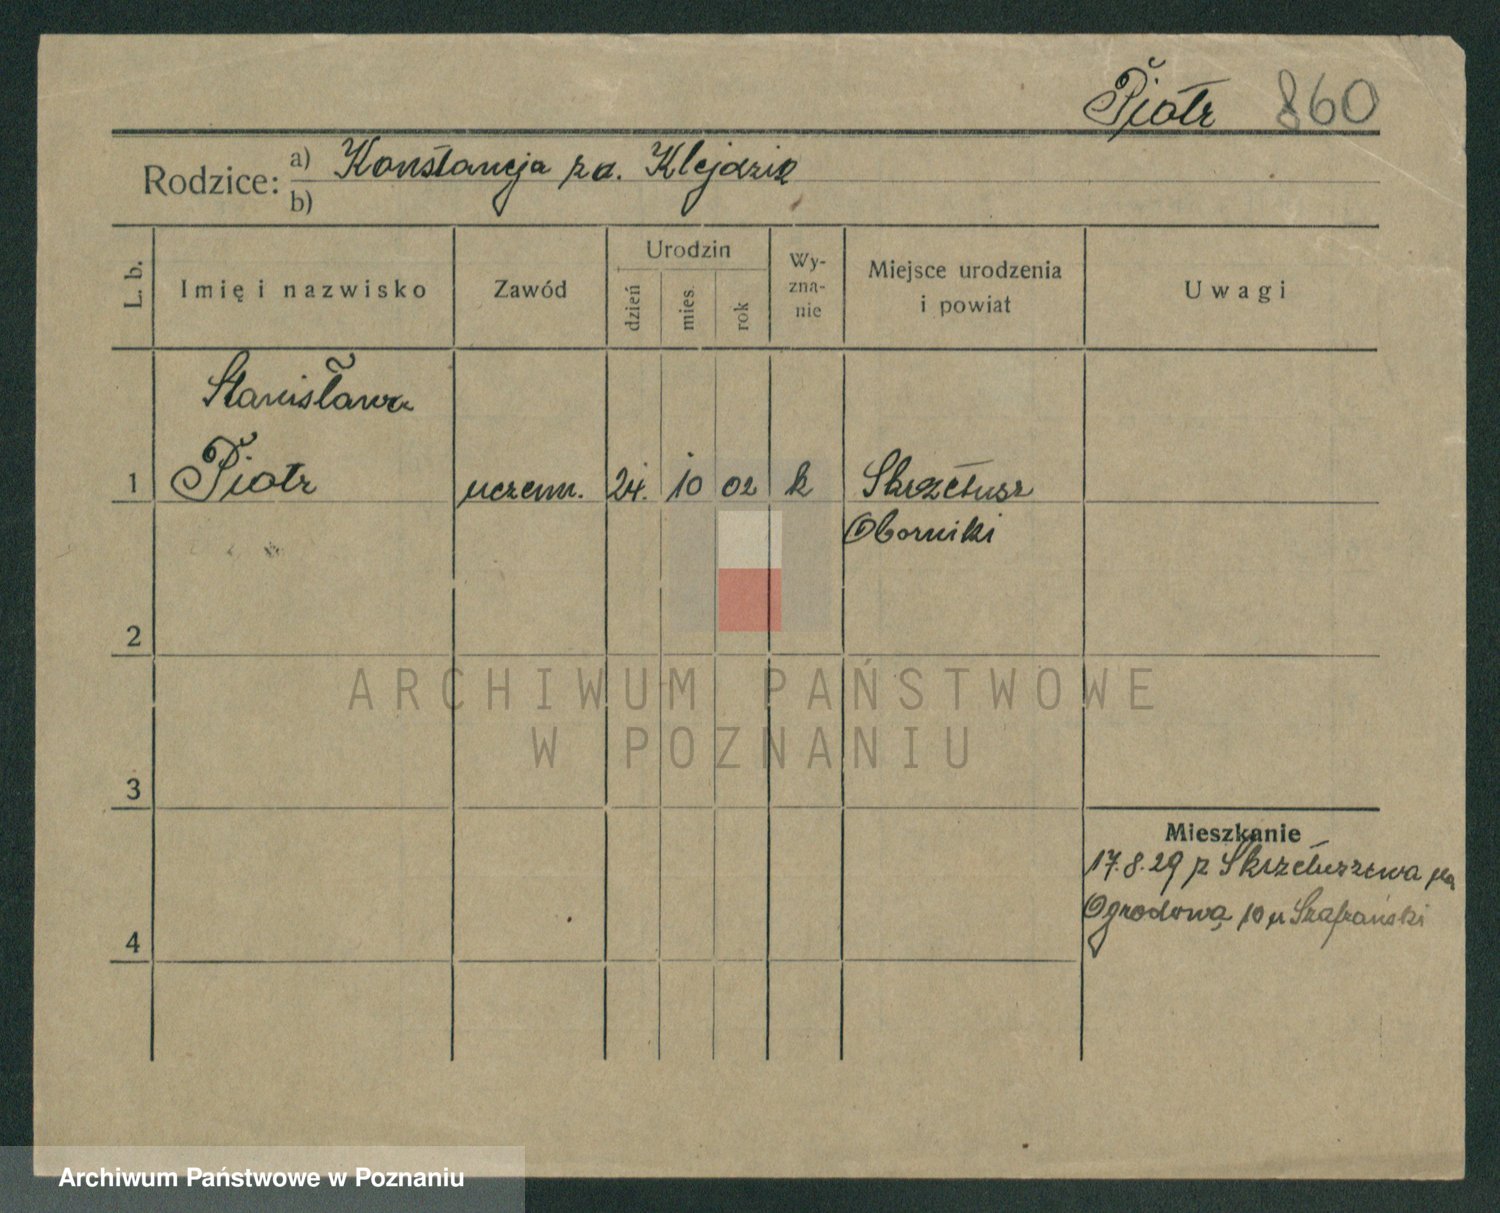 Piotr 860
Rodzice: a) Konstancja zd. Klejdzik
b)
L. b.
Imię i nazwisko
Zawód
Urodzin
dzień
mies.
rok
Wy-
zna-
nie
Miejsce urodzenia
i powiat
Uwagi
Stanisława
1 Piotr uczenn. 24. 10 02 k Skrzetusz
Oborniki
2
3
4
Mieszkanie
17.8.29 z Skrzetuszewa na
Ogrodową 10 u Szafrański
ARCHIWUM PAŃSTWOWE
W POZNANIU
Archiwum Państwowe w Poznaniu